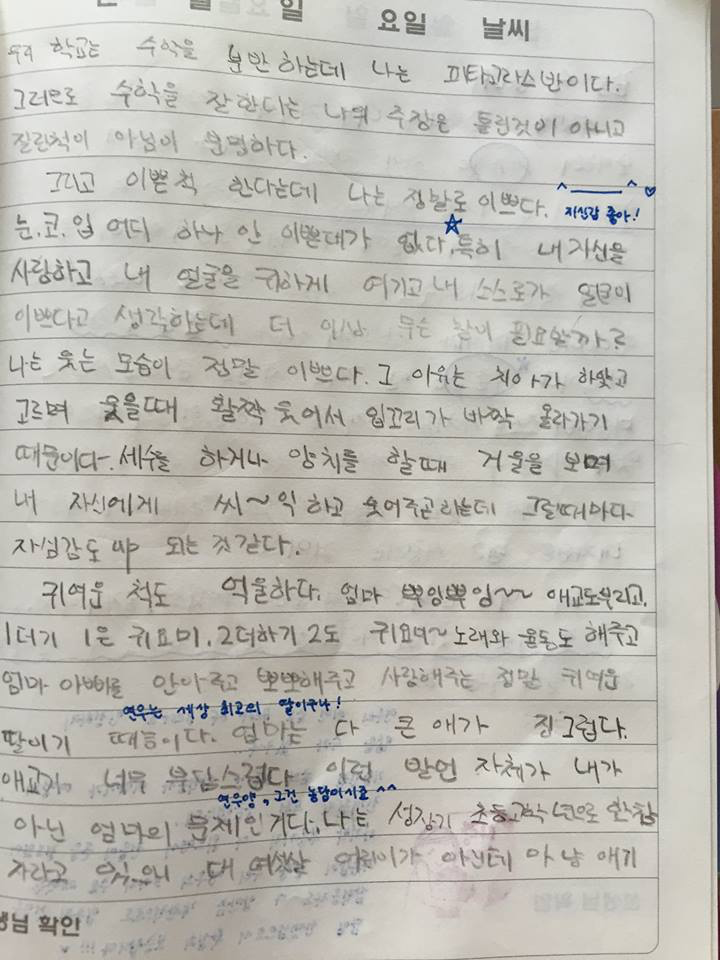 월 일 요일 날씨
우리 학교는 수학을 분반하는데 나는 피타고라스반이다.
그러므로 수학을 잘한다는 나의 주장은 틀린것이 아니고
잘난척이 아님이 분명하다.
그리고 이쁜척 한다는데 나는 정말로 이쁘다.
자신감 좋아!
눈.코.입 어디 하나 안 이쁜데가 없다. 특히 내 자신을
사랑하고 내 얼굴을 귀하게 여기고 내 스스로가 얼굴이
이쁘다고 생각하는데 더 이상 무슨 말이 필요할까?
나는 웃는 모습이 정말 이쁘다. 그 이유는 치아가 하얗고
고르며 웃을때 활짝 웃어서 입꼬리가 바짝 올라가기
때문이다. 세수를 하거나 양치를 할때 거울을 보며
내 자신에게 씨~익 하고 웃어주곤하는데 그럴때마다
자심감도 up 되는 것 같다.
귀여운 척도 억울하다. 엄마 뿌잉뿌잉~~ 애교도부리고,
1더기 1은 귀요미, 2더하기 2도 귀요며~ 노래와 율동도 해주고
엄마 아빠를 안아주고 뽀뽀해주고 사랑해주는 정말 귀여운
연우는 세상 최고의 딸이구나!
딸이기 때문이다. 엄마는 다 큰 애가 징그럽다.
애교가 너무 부담스럽다 이런 발언 자체가 내가
연우양, 그건 농담이시죠 ^^
아닌 엄마의 문제인거다. 나는 성장기 초등고학년으로 한참
자라고 있으니 대여섯살 어린이가 아닌데 마냥 애기
생님 확인